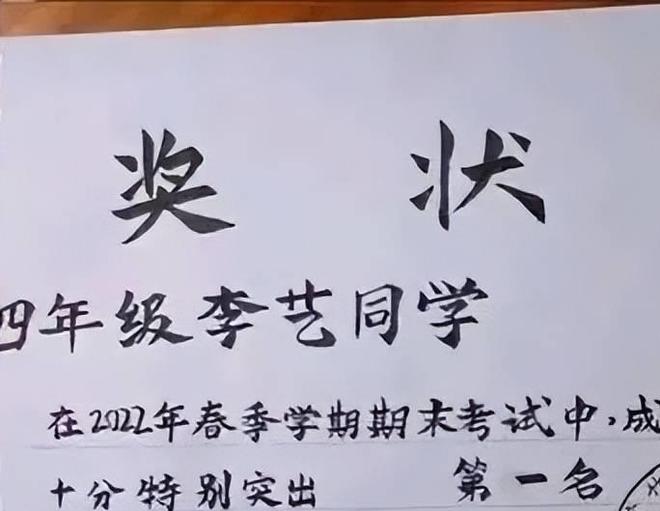 奖 状
四年级李艺同学
在2022年春季学期期末考试中，成
十分特别突出 第一名